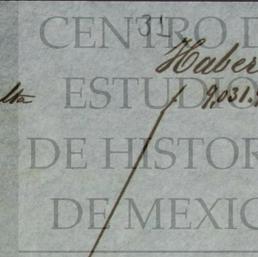 31
CENTRO D
Haber
lta
ESTUDIO
9,031.
DE HISTOR
DE MEXIC